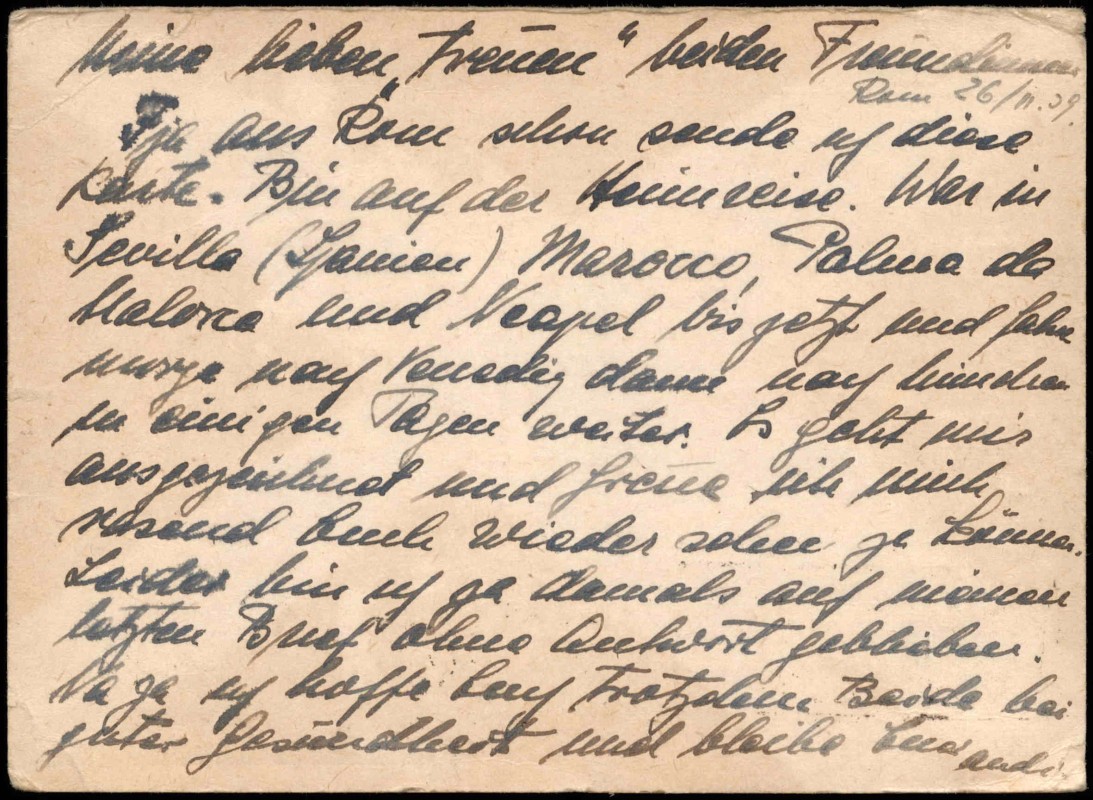 Meine lieben „treuen“ beiden Freundinnen
Rom 26/II.39.
Tja aus Rom schon sende ich diese
Karte. Bin auf der Heimreise. War in
Sevilla (Spanien) Marocco, Palma de
Malorca und Neapel bis jetzt und fahre
morge nach Venedig dann nach München
in einigen Tagen weiter. Es geht mir
ausgezeichnet und freue ich mich
rasend Euch wieder sehen zu können.
Leider bin ich ja damals auf meinen
letzten Brief ohne Antwort geblieben.
Na ja ich hoffe Euch trotzdem Beide bei
guter Gesundheit und bleibe Euer